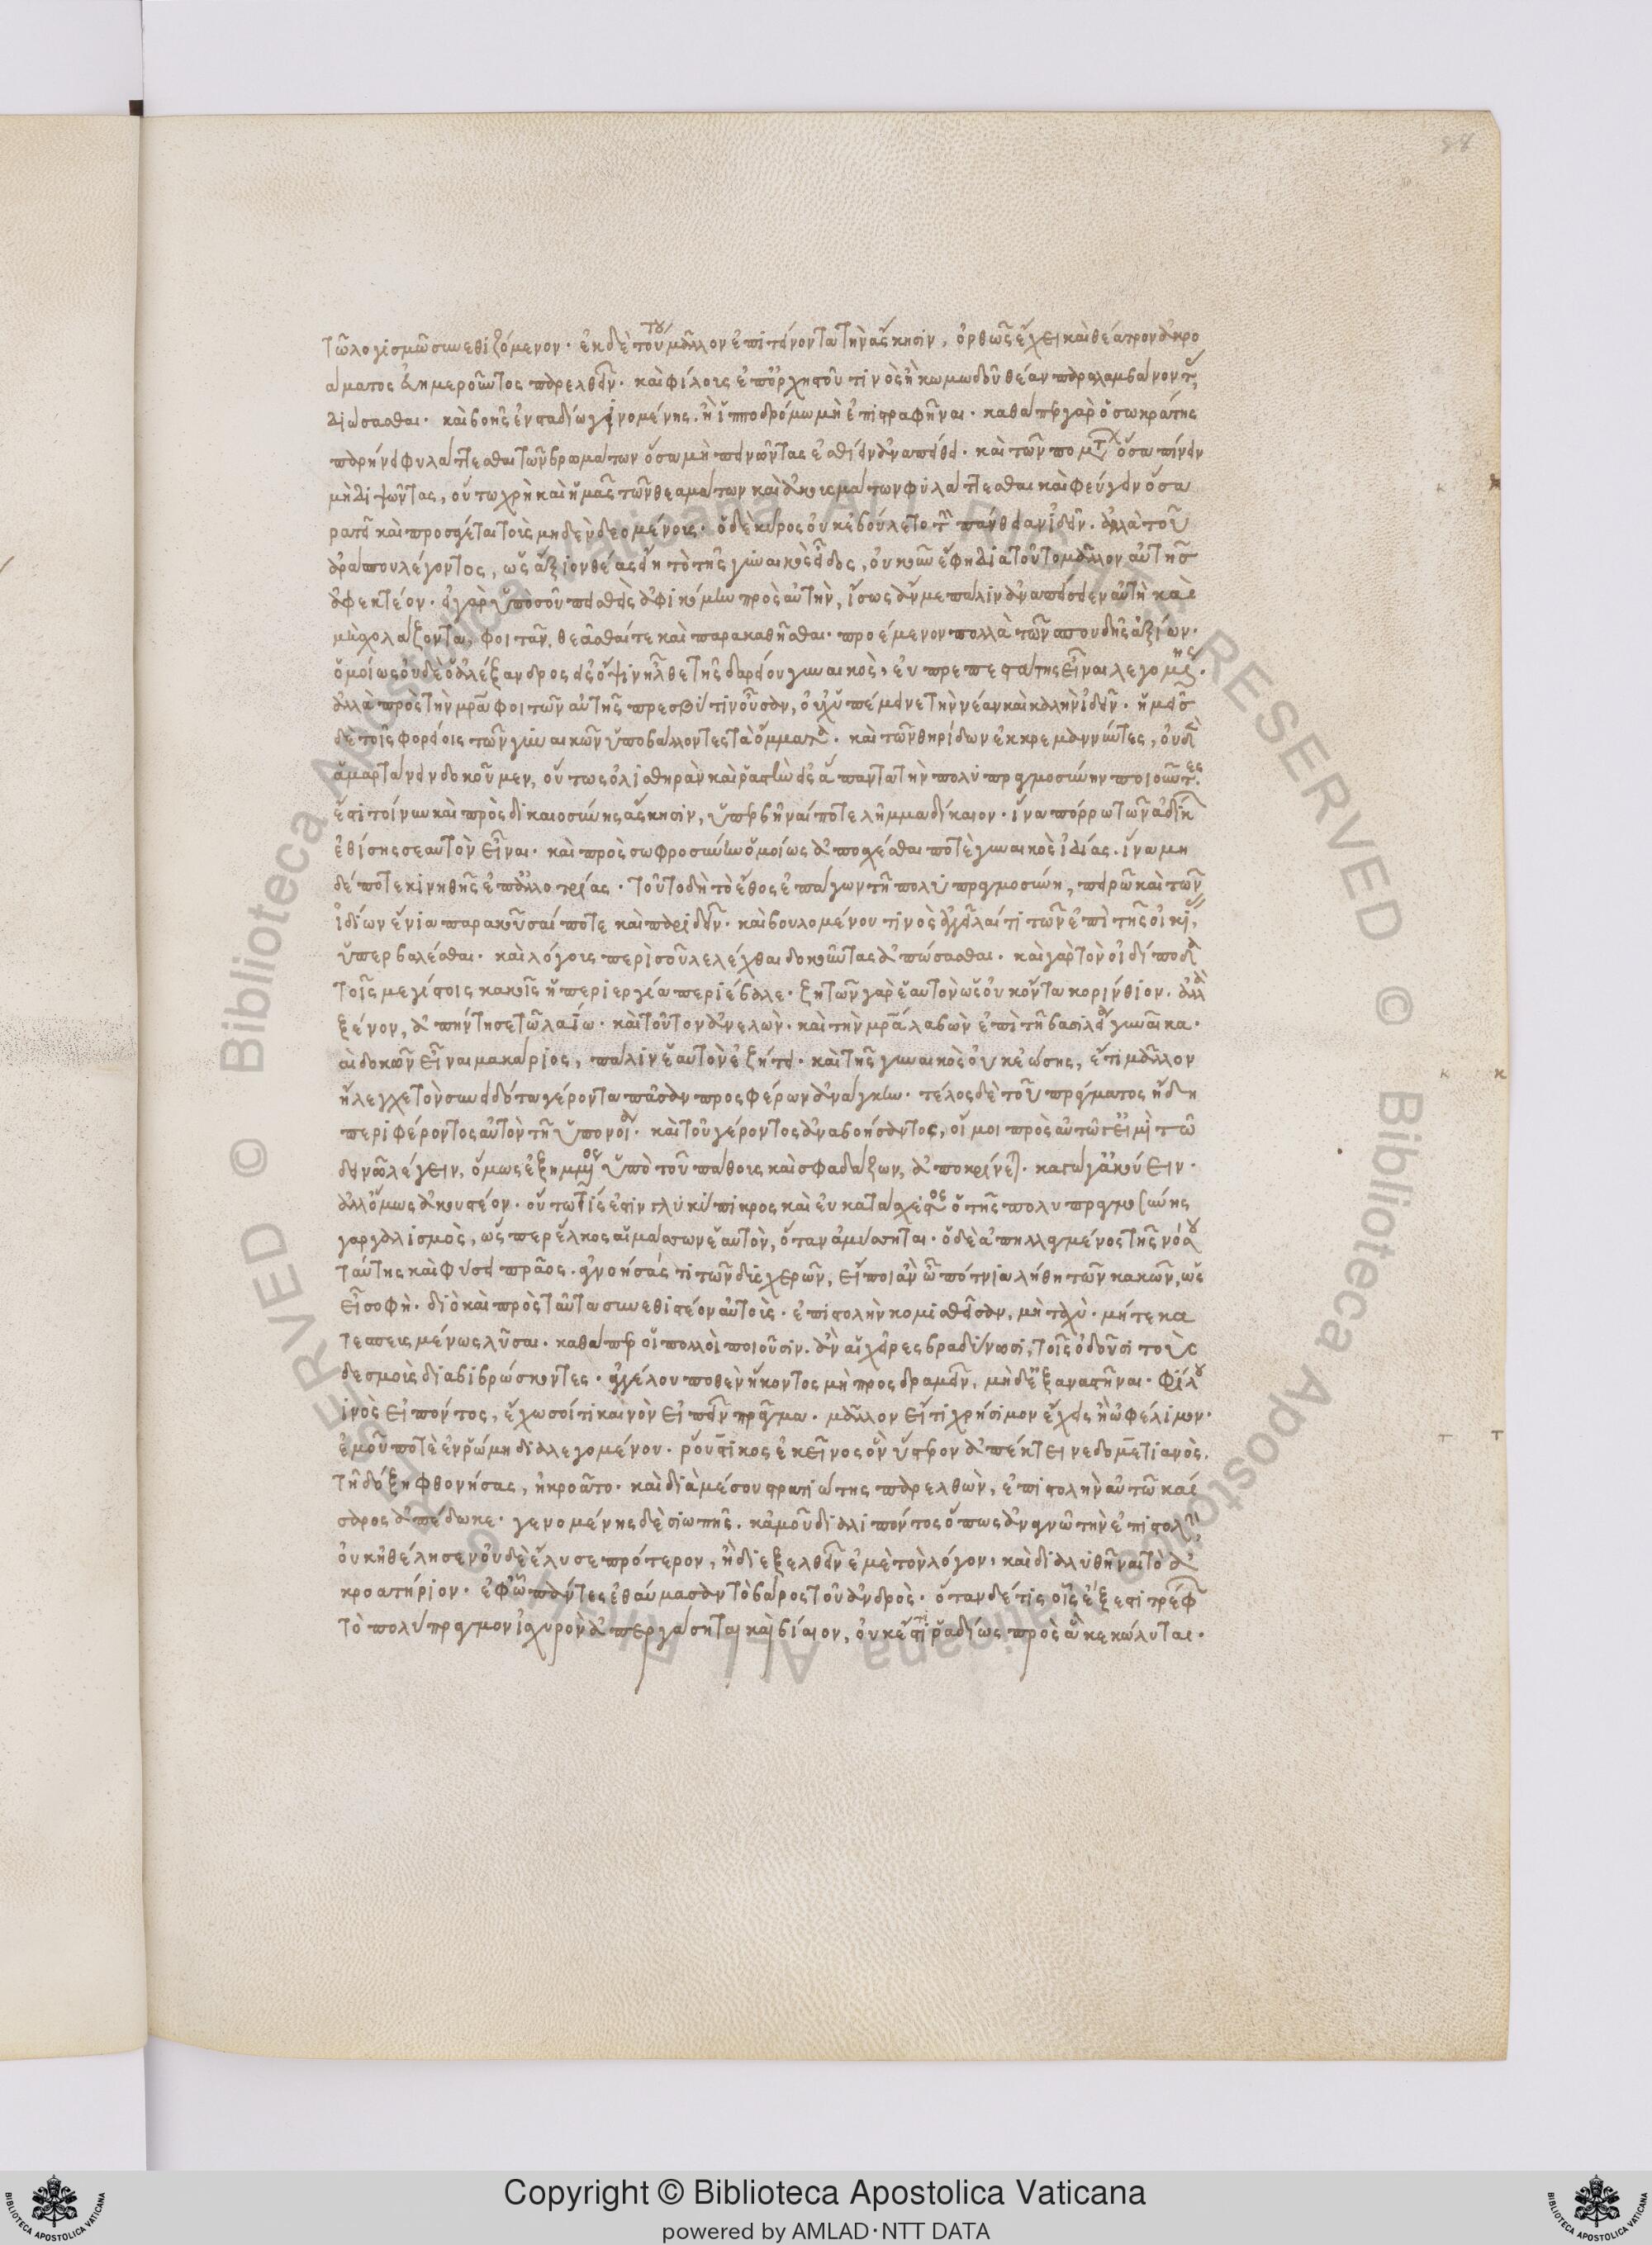 τῶ λογισμῶ συνεθιζόμενον· ἐκ δὲ τούτου μᾶλλον ἐπιτείνοντα τὴν ἄσκησιν, ὀρθῶς ἔχει καὶ θέατρον ἀκρο
άματος εὐημεροῦντος παρελθεῖν· καὶ φίλοις ἐπ' ὀρχηστοῦ τινὸς ἢ κωμωδοῦ θέαν παραλαμβάνοντ
διώσασθαι· καὶ βοῆς ἐν σταδίω γινομένης, ἢ ἱπποδρόμω μὴ ἐπιστραφῆναι· καθάπερ γὰρ ὁ σωκράτης
παρήνει φυλάττεσθαι τῶν βρωμάτων ὅσα μὴ πεινῶντας ἐσθίειν ἀναπείθει· καὶ τῶν πομάτων ὅσα πίνειν
μὴ διψῶντας, οὕτω χρὴ καὶ ἡμᾶς τῶν θεαμάτων καὶ ἀκουσμάτων φυλάττεσθαι καὶ φεύγειν ὅσα
κρατεῖ καὶ προσάγεται τοὺς μηδὲν δεομένους· ὁ δὲ κῦρος οὐκ ἐβούλετο τὴν πάνθειαν ἰδεῖν· ἀλλὰ τοῦ
ἀράσπου λέγοντος, ὡς ἄξιον θέας εἴη τὸ τῆς γυναικὸς εἶδος, οὐκοῦν ἔφη διὰ τοῦτο μᾶλλον αὐτῆς
ἀφεκτέον· εἰ γὰρ ὑπὸ σοῦ πεισθεὶς ἀφικοίμην πρὸς αὐτὴν, ἴσως ἄν με πάλιν ἀναπείσειεν αὐτὴ καὶ
μὴ σχολάζοντα, φοιτᾶν, θεᾶσθαί τε καὶ παρακαθῆσθαι· προέμενον πολλὰ τῶν σπουδῆς ἀξίων·
ὁμοίως οὐδὲ ὁ ἀλέξανδρος εἰς ὄψιν ἦλθε τῆς δαρείου γυναικὸς, εὐπρεπεστάτης εἶναι λεγομένης·
ἀλλὰ πρὸς τὴν μρ̅α φοιτῶν αὐτῆς πρεσβύτιν οὖσαν, οὐχ ὑπέμεινε τὴν νέαν καὶ καλὴν ἰδεῖν· ἡμεῖς
δὲ τοῖς φορείοις τῶν γυναικῶν ὑποβάλλοντες τὰ ὄμματα· καὶ τῶν θυρίδων ἐκκρεμαννύντες, οὐδὲν
ἁμαρτάνειν δοκοῦμεν, οὕτως ὀλισθηρὰν καὶ ῥυτὴν εἰς ἅπαντα τὴν πολυπραγμοσύνην ποιοῦντες·
ἔστι τοίνυν καὶ πρὸς δικαιοσύνης ἄσκησιν, ὑπερβῆναί ποτε λῆμμα δίκαιον· ἵνα πόρρω τῶν ἀδίκων
ἐθίσης σεαυτὸν εἶναι· καὶ πρὸς σωφροσύνην ὁμοίως ἀποσχέσθαι ποτὲ γυναικὸς ἰδίας· ἵνα μη
δέποτε κινηθῆς ἐπ' ἀλλοτρίας· τοῦτο δὴ τὸ ἔθος ἐπάγων τῆ πολυπραγμοσύνη, πειρῶ καὶ τῶν
ἰδίων ἔνια παρακοῦσαί ποτε καὶ παριδεῖν· καὶ βουλομένου τινὸς ἀγγεῖλαί τι τῶν ἐπὶ τῆς οἰκίας,
ὑπερβαλέσθαι· καὶ λόγους περὶ σοῦ λελέχθαι δοκοῦντας ἀπώσασθαι· καὶ γὰρ τὸν οἰδίποδα
τοῖς μεγίστοις κακοῖς ἡ περιεργία περιέβαλε· ζητῶν γὰρ ἑαυτὸν ὡς οὐκ ὄντα κορίνθιον, ἀλλὰ
ξένον, ἀπήντησε τῶ λαΐω· καὶ τοῦτον ἀνελὼν· καὶ τὴν μρ̅α λαβὼν ἐπὶ τῆ βασιλεία γυναῖκα·
καὶ δοκῶν εἶναι μακάριος, πάλιν ἑαυτὸν ἐζήτει· καὶ τῆς γυναικὸς οὐκ ἐώσης, ἔτι μᾶλλον
ἤλεγχε τὸν συνειδότα γέροντα πᾶσαν προσφέρων ἀνάγκην· τέλος δὲ τοῦ πράγματος ἤδη
περιφέροντος αὐτὸν τῆ ὑπονοία· καὶ τοῦ γέροντος ἀναβοήσαντος, οἴμοι πρὸς αὐτῶ γ' εἰμὶ τῶ
δεινῶ λέγειν, ὅμως ἐξημμένος ὑπὸ τοῦ πάθους καὶ σφαδάζων, ἀποκρίνεται· κἄγωγ' ἀκούειν·
ἀλλ' ὅμως ἀκουστέον· οὕτω τίς ἐστιν γλυκύπικρος καὶ ἐυκατάσχετος ὁ τῆς πολυπραγμοσύνης
γαργαλισμὸς, ὥσπερ ἕλκος αἱμάσσων ἑαυτὸν, ὅταν ἀμύσσηται· ὁ δὲ ἀπηλλαγμένος τῆς νόσου
ταύτης καὶ φύσει πρᾶος. ἀγνοήσας τι τῶν δυσχερῶν, εἴποι ἂν ὦ πότνια λήθη τῶν κακῶν, ὡς
εἶ σοφή· διὸ καὶ πρὸς ταῦτα συνεθιστέον αὑτοὺς· ἐπιστολὴν κομισθεῖσαν, μὴ ταχὺ· μήτε κα
τεσπευσμένως λῦσαι· καθάπερ οἱ πολλοὶ ποιοῦσιν. ἂν αἱ χεῖρες βραδύνωσι, τοῖς ὀδοῦσι τοὺς
δεσμοὺς διαβιβρώσκοντες· ἀγγέλου ποθὲν ἥκοντος μὴ προσδραμεῖν, μὴ δ' ἐξαναστῆναι· φίλου
τινὸς εἰπόντος, ἔχω σοί τι καινὸν εἰπεῖν πρᾶγμα· μᾶλλον εἴ τι χρήσιμον ἔχεις ἢ ὠφέλιμον·
ἐμοῦ ποτὲ ἐν ῥώμη διαλεγομένου· ῥούστικος ἐκεῖνος ὃν ὕστερον ἀπέκτεινε δομετιανὸς.
τῆ δόξη φθονήσας, ἠκροᾶτο· καὶ διὰ μέσου στρατιώτης παρελθὼν, ἐπιστολὴν αὐτῶ καί
σαρος ἀπέδωκε· γενομένης δὲ σιωπῆς. κἀμοῦ διαλιπόντος ὅπως ἀναγνῶ τὴν ἐπιστολὴν
οὐκ ἠθέλησεν οὐδὲ ἔλυσε πρότερον, ἢ διεξελθεῖν ἐμὲ τὸν λόγον, καὶ διαλυθῆναι τὸ ἀ
κροατήριον· ἐφ' ᾧ πάντες ἐθαύμασαν τὸ βάρος τοῦ ἀνδρὸς· ὅταν δέ τις οἷς ἔξεστι τρέφων
τὸ πολύπραγμον ἰσχυρὸν ἀπεργάσηται καὶ βίαιον, οὐκέτι ῥαδίως πρὸς ἃ κεκώλυται·
Copyright © Biblioteca Apostolica Vaticana
powered by AMLAD·NTT DATA